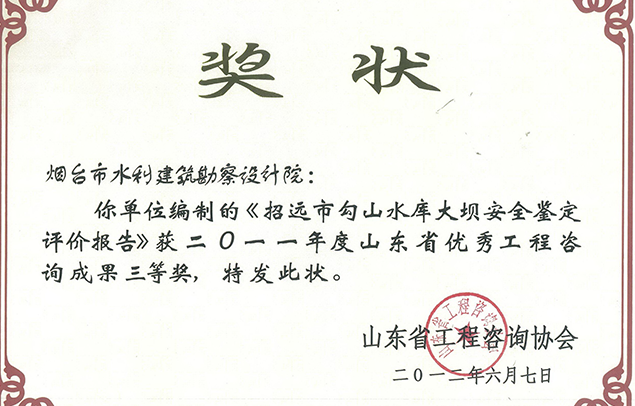 奖状
烟台市水利建筑勘察设计院：
你单位编制的《招远市勾山水库大坝安全鉴定
评价报告》获二〇一一年度山东省优秀工程咨
询成果三等奖，特发此状。
山东省工程咨询协会
二〇一二年六月七日